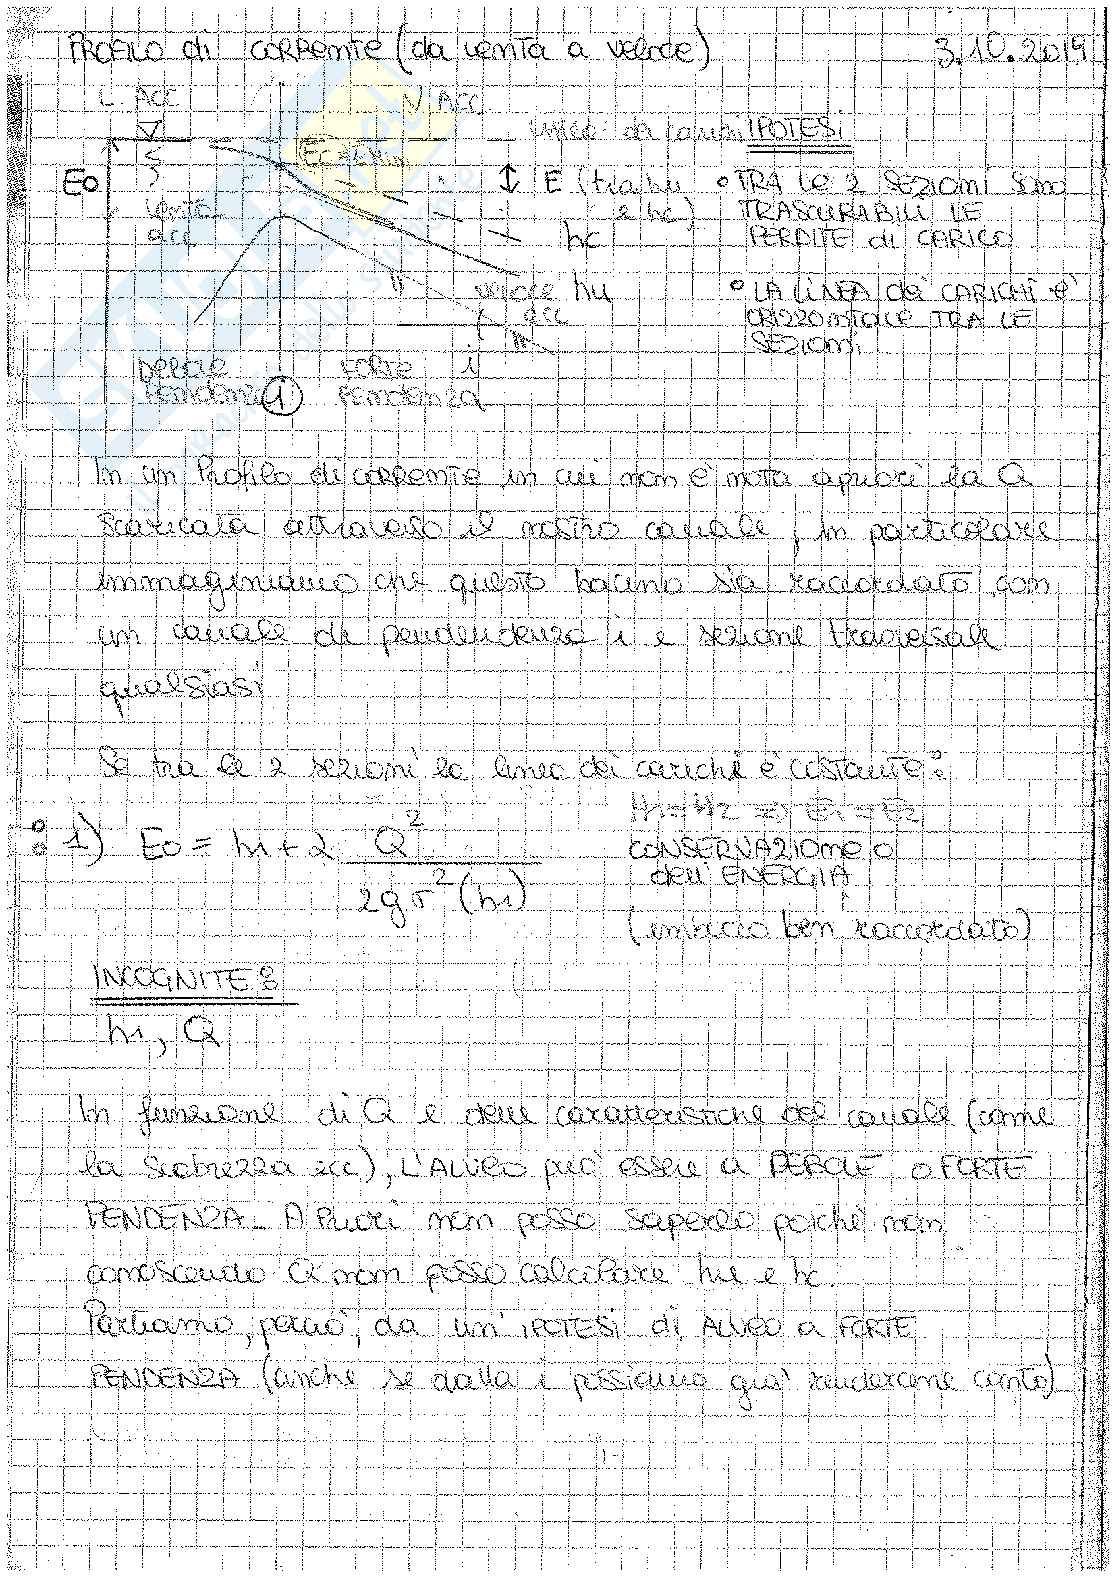 PROFILO di CORRENTE (da lenta a veloce) 3.10.2019
L ACC V ACC
linea dei carichi IPOTESI
E0 E (tra hu e hc)
lenta acc
hc
veloce acc hu
• TRA LE 2 SEZIONI sono
TRASCURABILI LE
PERDITE di CARICO
• LA LINEA dei CARICHI e'
ORIZZONTALE TRA LE
SEZIONI
DEBOLE FORTE i
PENDENZA 1 PENDENZA
In un Profilo di corrente in cui non è nota apriori la Q
scaricata attraverso il nostro canale, in particolare
immaginiamo che questo bacino sia raccordato con
un canale di pendendenza i e sezione trasversale
qualsiasi
Se tra le 2 sezioni la linea dei carichi è costante:
H1=H2 => E1=E2
: 1) E0 = h1 + α Q² / 2gσ²(h1)
CONSERVAZIONE
dell'ENERGIA
(imbocco ben raccordato)
INCOGNITE:
h1, Q
In funzione di Q e delle caratteristiche del canale (come
la scabrezza ecc), L'ALVEO può essere a DEBOLE o FORTE
PENDENZA. A Priori non posso saperlo poichè non
conoscendo Q non posso calcolare hu e hc.
Partiamo, perciò, da un'IPOTESI di ALVEO a FORTE
PENDENZA (anche se dalla i possiamo già rendercene conto)